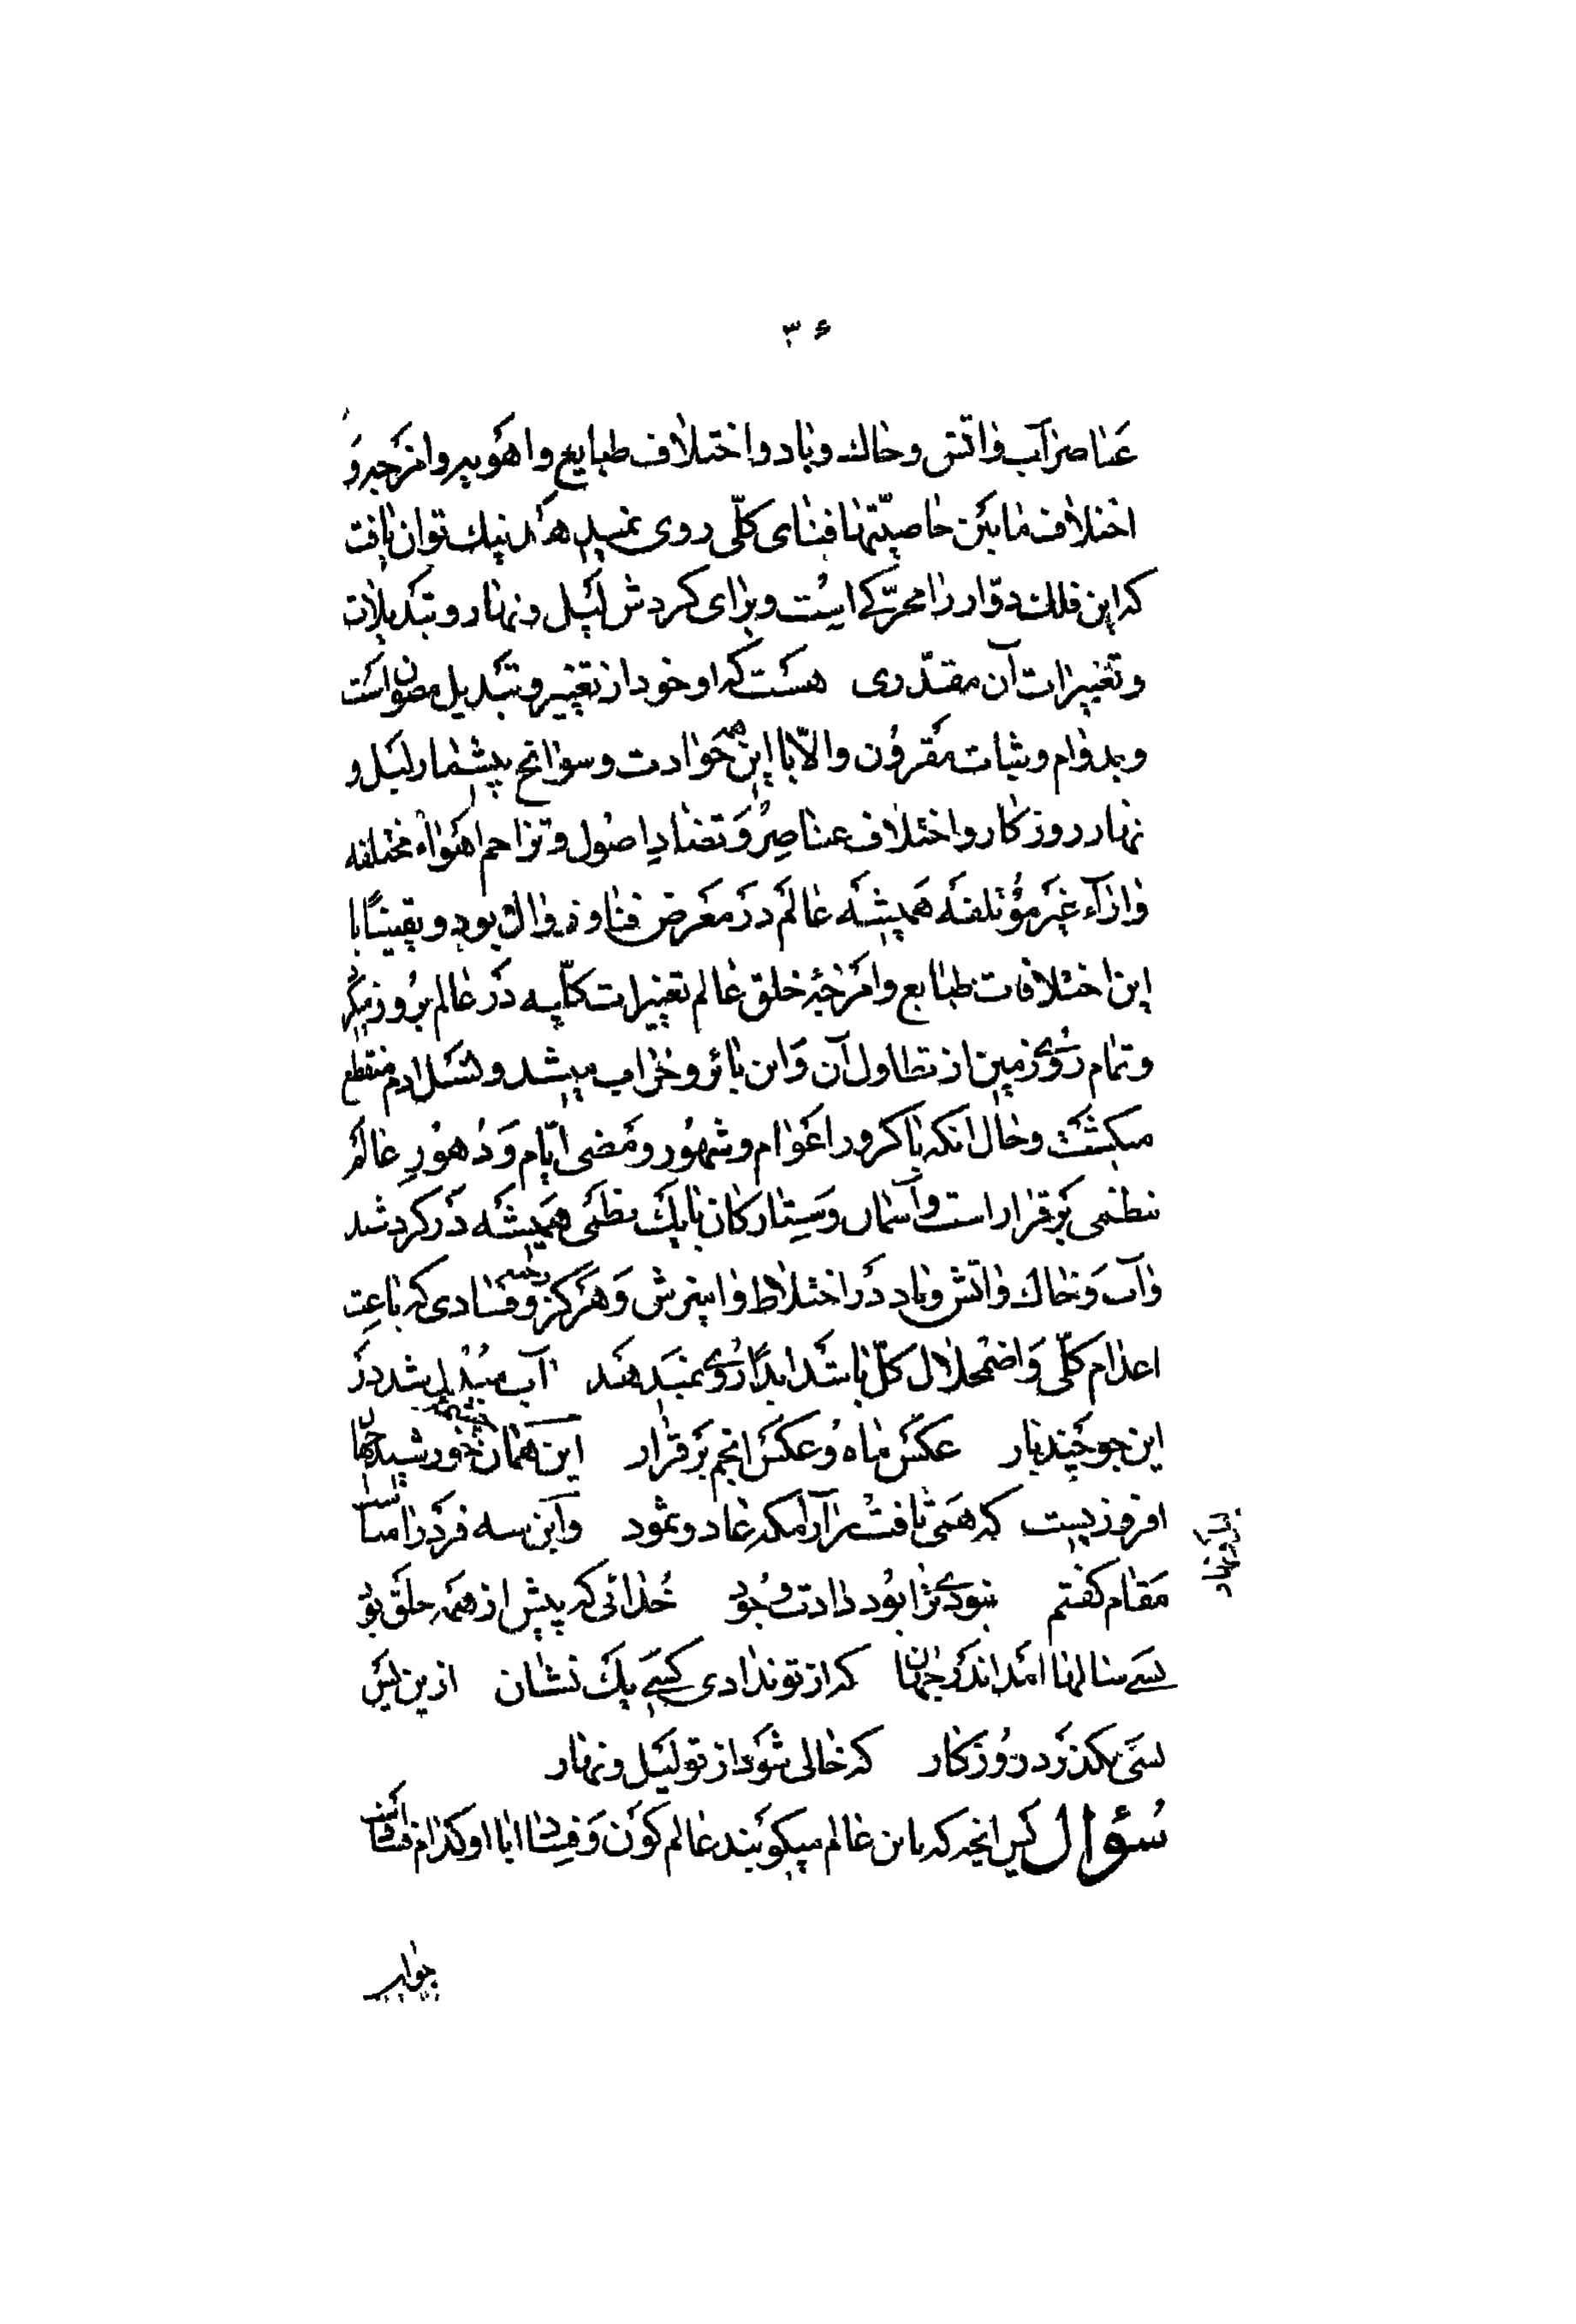 ۳۶
عناصر آب و اتش و خاك و باد و اختلاف طبایع و اهویه و امزجه و
اختلاف مابین خاصیّتها فنای کلّی روی نمیدهد نیك توان یافت
که این فلك دوّار را محرّکے است و برای کردش لیل و نهار و تبدیلات
و تغییرات آن مقدّری هست که او خود از تغییر و تبدیل مصون است
و بدوام و ثبات مقرون و الّا با این همه حوادث و سوانح بیشمار لیل و
نهار روزکار و اختلاف عناصر و تضاد اصول و تزاحم اهواء مختلفه
و اراء غیر مؤتلفه همیشه عالم در معرض فنا و زوال بود و یقیناً با
این اختلافات طبایع و امزجهٔ خلق عالم تغییرات کلّیه در عالم بروز میکرد
و تمام روی زمین از تطاول آن و این بائر و خراب میشد و نسل ادم منقطع
میکشت و حال انکه با کرور اعوام و شهور و مضی ایّام و دهور عالم
بنظمی برقرار است و آسمان و ستارکان بایك نظمی همیشه در کردشند
و آب و خاك و اتش و باد در اختلاط و امیزش و هرکز و فسادی که باعث
اعدام کلّی و اضمحلال کلّ باشد ابداً روی نمیدهند آب مبدل شد در
این جو چند بار عکس ماه و عکس انجم برقرار این همان چشمه خورشید جهان
افروزیست که همی تافت بر آرامکه عاد و ثمود و این سه فرد را مناسب
مقام کفتم نبودی ترا بود دادت وجود خدائی که پیش از همه خلق بود
بسے سالها امد اندر جهان که از تو ندادی کسے یك نشان ازین پس
بسی بکذرد روزکار که خالی شود از تو لیل و نهار
سؤال پس انچه که باین عالم میکویند عالم کون و فساد ایا او کدام فساد است
جواب